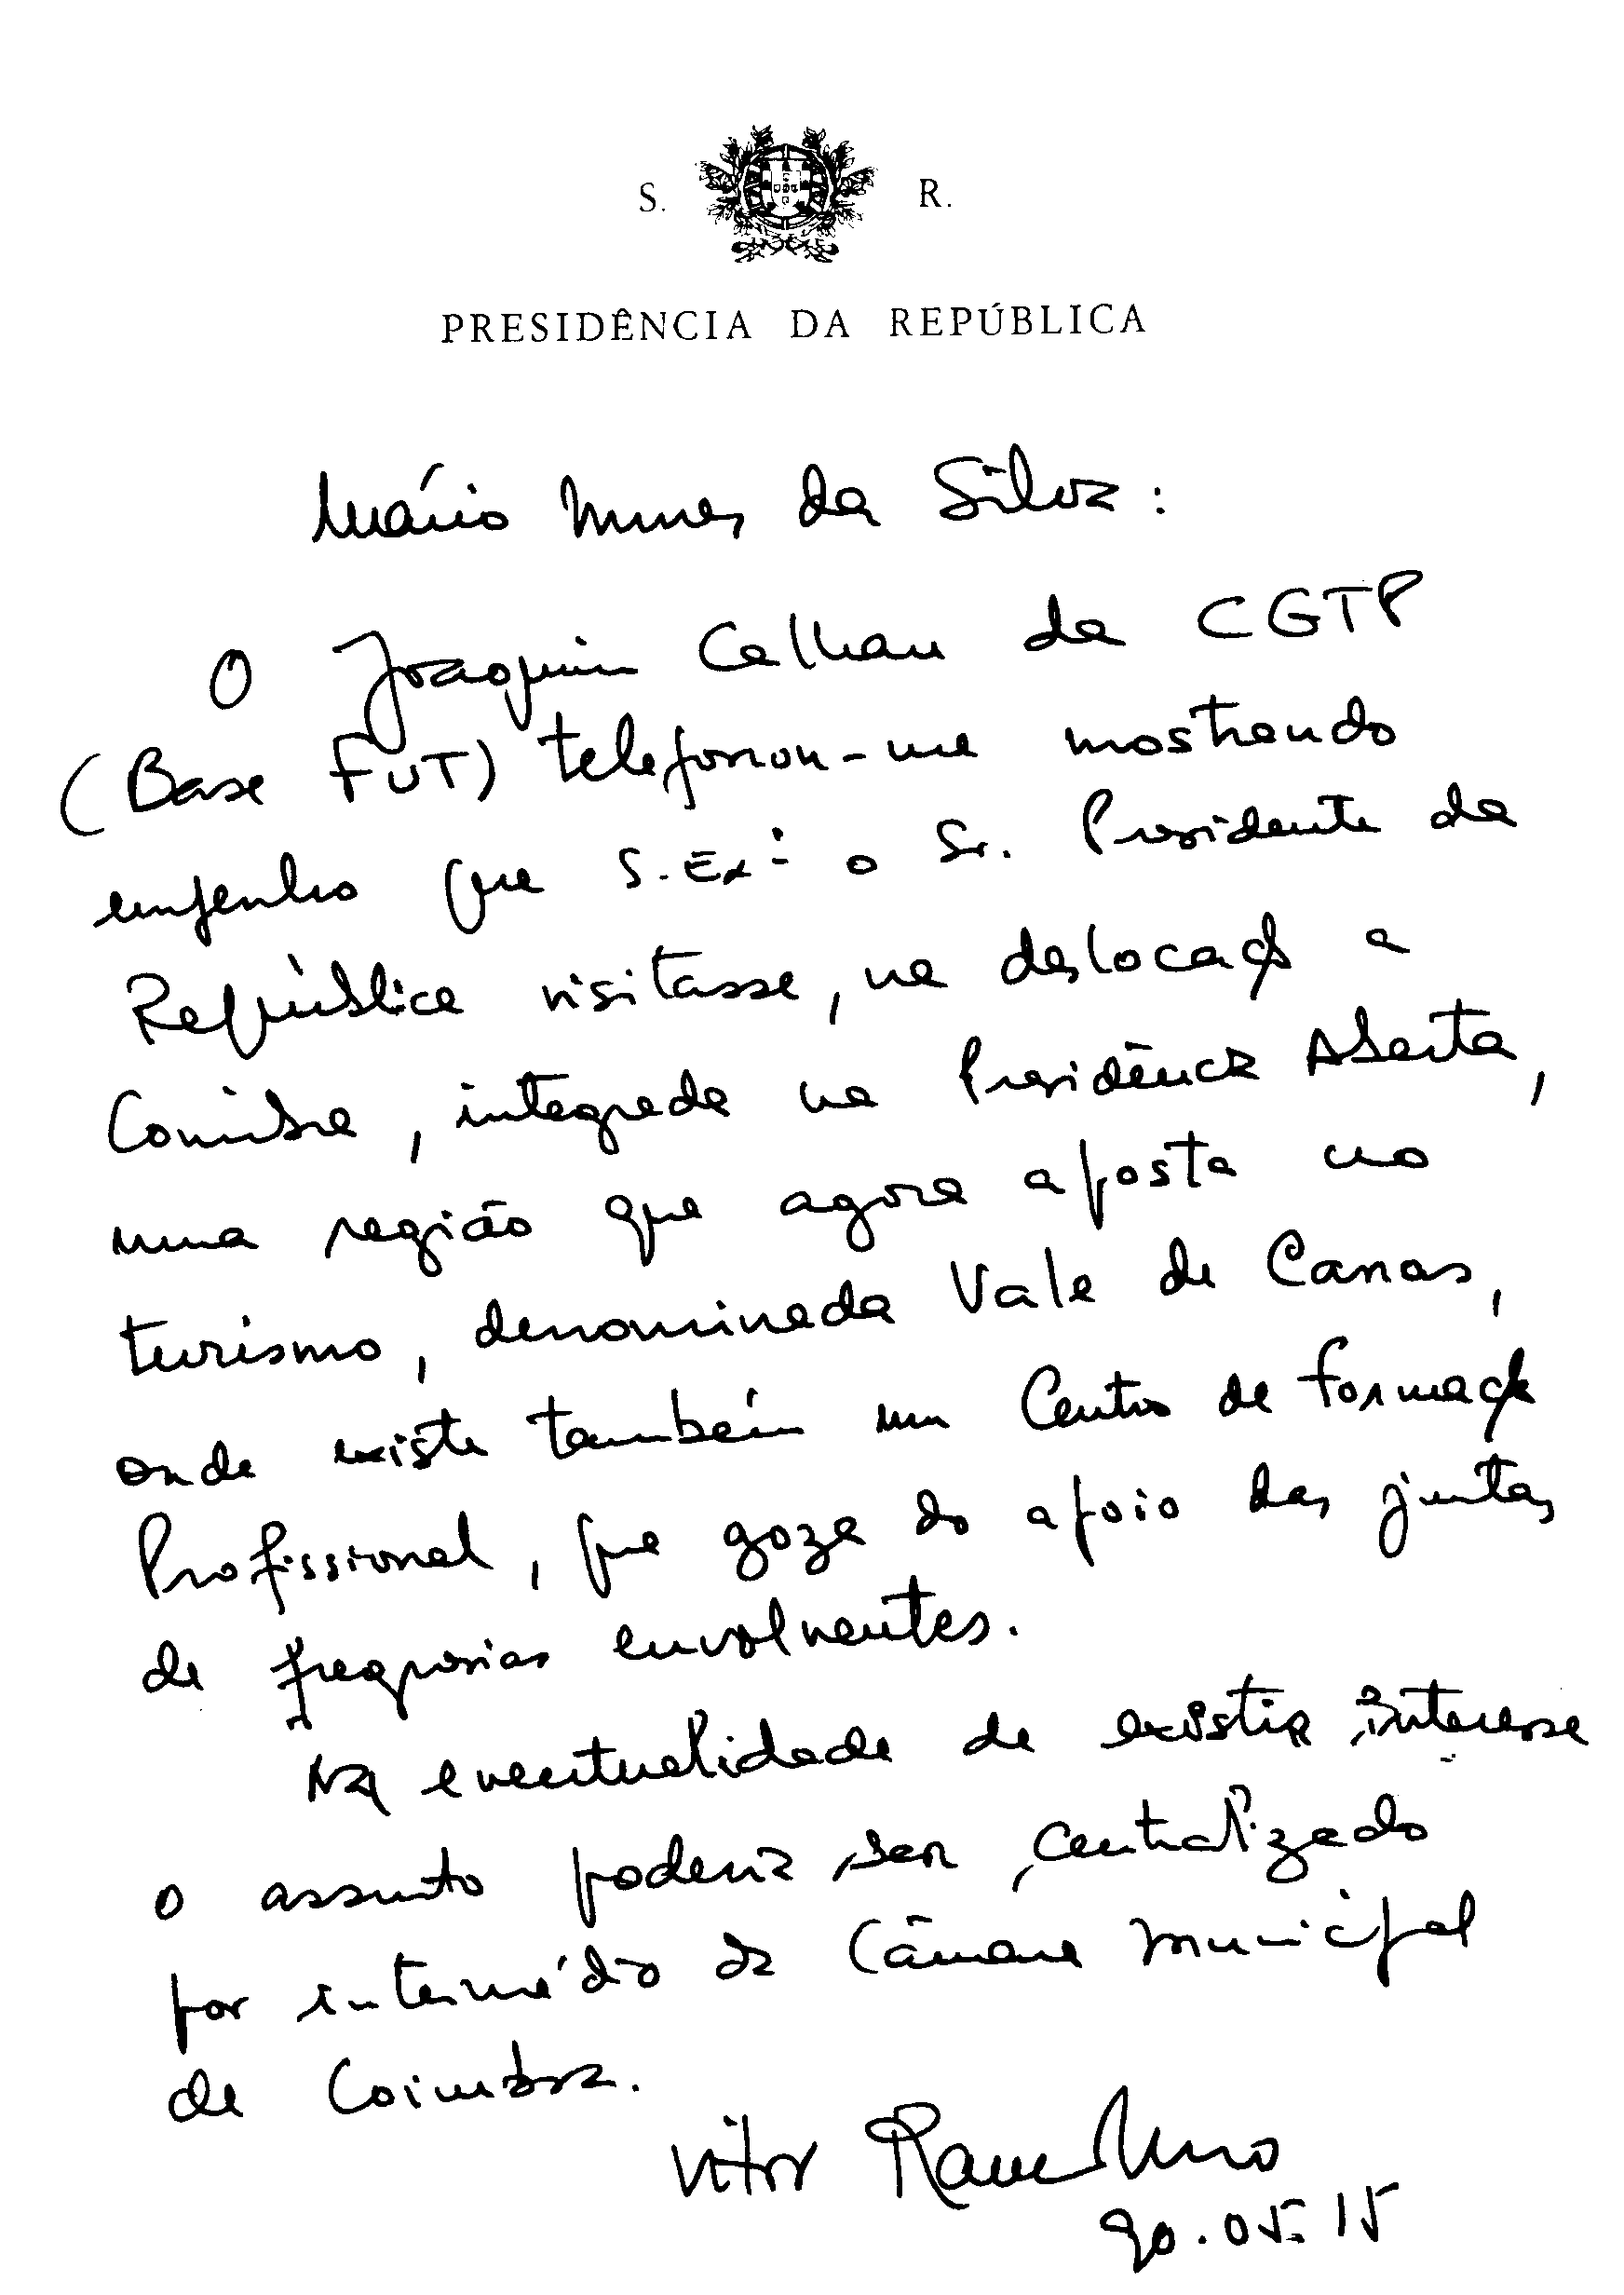 S. R.
PRESIDÊNCIA DA REPÚBLICA
Mário Nunes da Silva:
O Joaquim Calhau da CGTP
(Base FUT) telefonou-me mostrando
empenho que S. Exª o Sr. Presidente da
República visitasse, na deslocação a
Coimbra, integrada na Presidência Aberta,
numa região que agora aposta no
turismo, denominada Vale de Canas,
onde existe também um Centro de Formação
Profissional, que goza do apoio das juntas
de freguesias envolventes.
Na eventualidade de existir interesse
o assunto poderia ser centralizado
por intermédio da Câmara Municipal
de Coimbra.
Vitor Ramalho
90.05.15